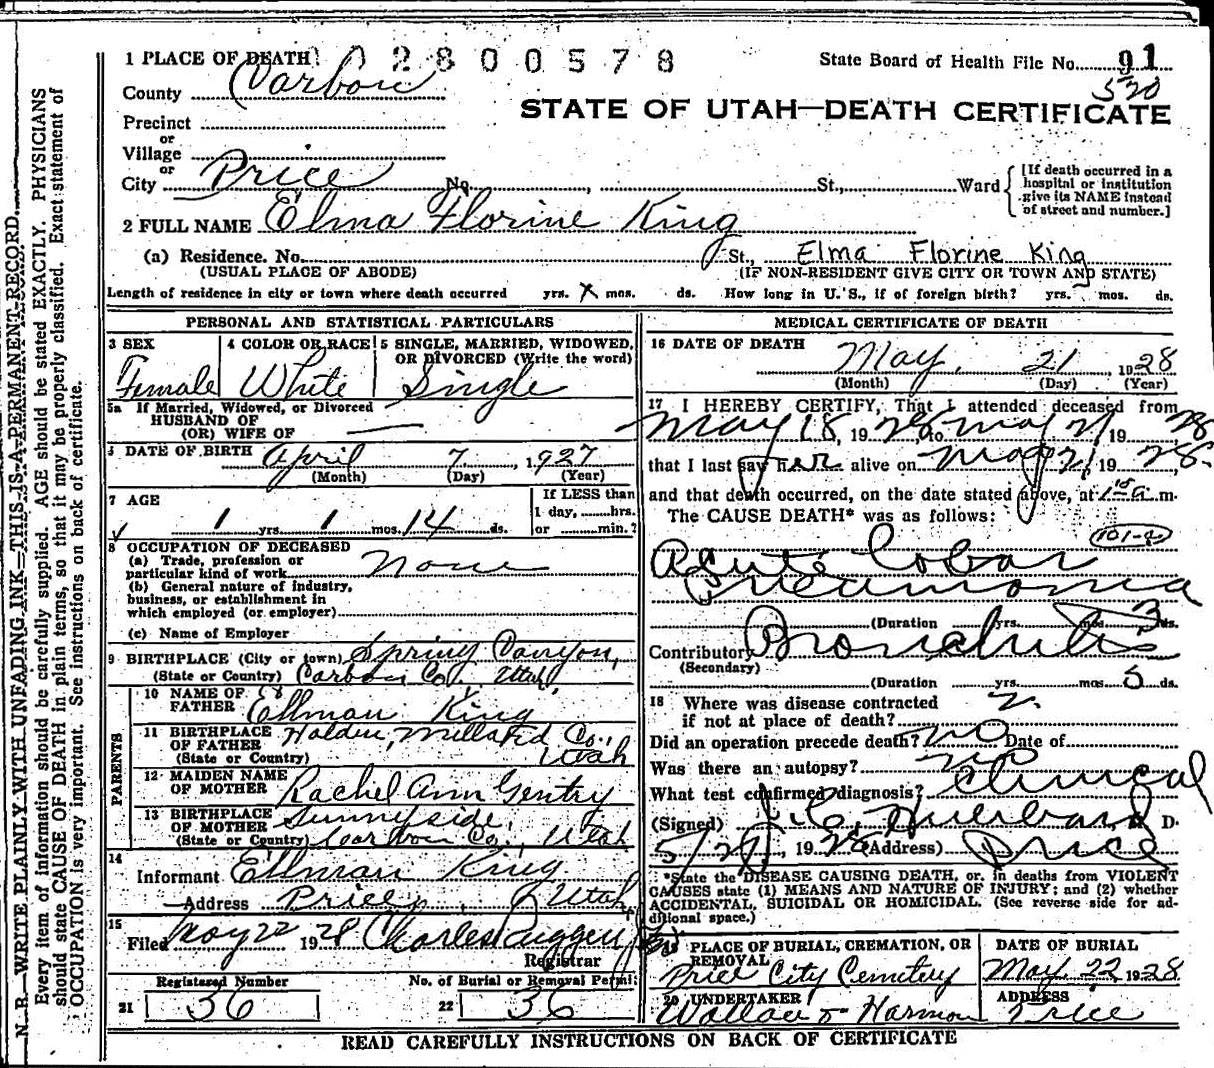 N. B.—WRITE PLAINLY WITH UNFADING INK—THIS IS A PERMANENT RECORD.
Every item of information should be carefully supplied. AGE should be stated EXACTLY. PHYSICIANS
should state CAUSE OF DEATH in plain terms, so that it may be properly classified. Exact statement of
OCCUPATION is very important. See instructions on back of certificate.
1 PLACE OF DEATH 002800578 State Board of Health File No. 91
520
County Carbon
STATE OF UTAH—DEATH CERTIFICATE
Precinct
or
Village
or
City Price No. , St., Ward [If death occurred in a hospital or institution give its NAME instead of street and number.]
2 FULL NAME Elma Florine King
(a) Residence. No. St., Elma Florine King
(USUAL PLACE OF ABODE) (IF NON-RESIDENT GIVE CITY OR TOWN AND STATE)
Length of residence in city or town where death occurred yrs. X mos. ds. How long in U. S., if of foreign birth? yrs. mos. ds.
PERSONAL AND STATISTICAL PARTICULARS
3 SEX 4 COLOR OR RACE 5 SINGLE, MARRIED, WIDOWED,
OR DIVORCED (Write the word)
Female White Single
5a If Married, Widowed, or Divorced
HUSBAND OF
(OR) WIFE OF —
6 DATE OF BIRTH April 7, 1927
(Month) (Day) (Year)
7 AGE If LESS than
1 yrs. 1 mos. 14 ds. 1 day, hrs.
or min.?
8 OCCUPATION OF DECEASED
(a) Trade, profession or
particular kind of work None
(b) General nature of industry,
business, or establishment in
which employed (or employer)
(c) Name of Employer
9 BIRTHPLACE (City or town) Spring Canyon,
(State or Country) Carbon Co., Utah
PARENTS
10 NAME OF
FATHER Ellman King
11 BIRTHPLACE
OF FATHER Holden, Millard Co.,
(State or Country) Utah
12 MAIDEN NAME
OF MOTHER Rachel Ann Gentry
13 BIRTHPLACE
OF MOTHER Sunnyside,
(State or Country) Carbon Co., Utah
14
Informant Ellman King
Address Price, Utah
15
Filed May 22 1928 Charles
Registrar
Registered Number No. of Burial or Removal Permit
21 36 22 36
MEDICAL CERTIFICATE OF DEATH
16 DATE OF DEATH
May 21 1928
(Month) (Day) (Year)
17 I HEREBY CERTIFY, That I attended deceased from
May 18, 1928 to May 21 1928
that I last saw her alive on May 21, 1928.
and that death occurred, on the date stated above, at m.
The CAUSE DEATH* was as follows:
Acute Lobar
Pneumonia
(Duration yrs. mos. 3 ds.
Contributory Bronchitis
(Secondary)
(Duration yrs. mos. 5 ds.
18 Where was disease contracted
if not at place of death?
Did an operation precede death? no Date of
Was there an autopsy? no
What test confirmed diagnosis? Clinical
(Signed) J. C. Hubbard, M. D.
5/21, 1928 (Address) Price
*State the DISEASE CAUSING DEATH, or, in deaths from VIOLENT
CAUSES state (1) MEANS AND NATURE OF INJURY; and (2) whether
ACCIDENTAL, SUICIDAL OR HOMICIDAL. (See reverse side for ad-
ditional space.)
19 PLACE OF BURIAL, CREMATION, OR DATE OF BURIAL
REMOVAL
Price City Cemetery May 22 1928
20 UNDERTAKER ADDRESS
Wallace & Harmon Price
READ CAREFULLY INSTRUCTIONS ON BACK OF CERTIFICATE